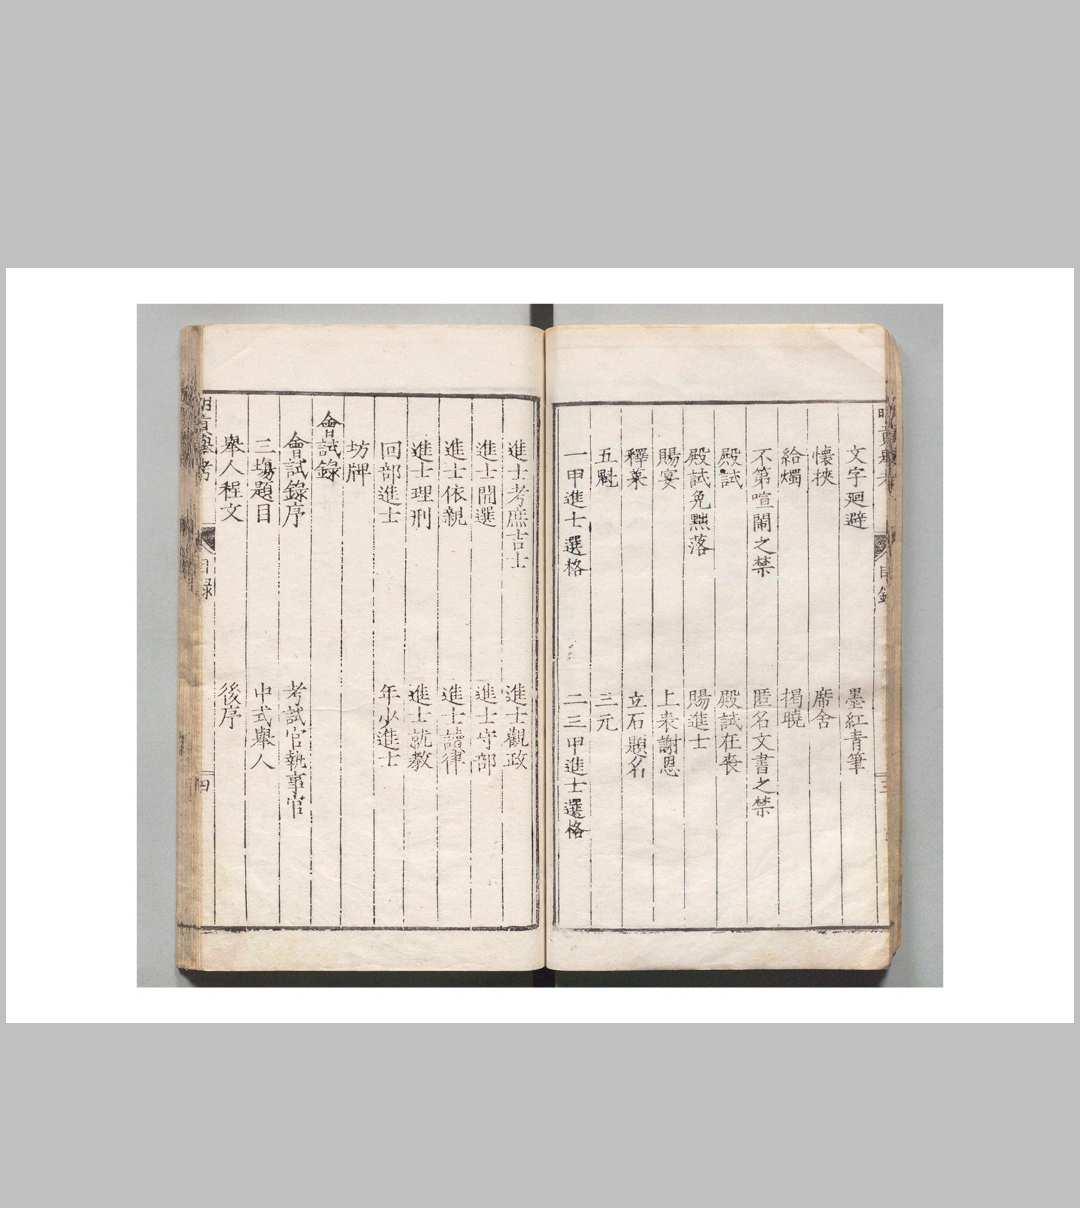 文字廻避　墨紅青筆
懷挾　席舍
給燭　揭曉
不第喧鬧之禁　匿名文書之禁
殿試　殿試在喪
殿試免黜落　賜進士
賜宴　上表謝恩
釋菜　立石題名
五魁　三元
一甲進士選格　二三甲進士選格
進士考庶吉士　進士觀政
進士開選　進士守部
進士依親　進士讀律
進士理刑　進士就教
回部進士　年少進士
坊牌
會試錄
會試錄序　考試官執事官
三場題目　中式舉人
舉人程文　後序
目錄　四